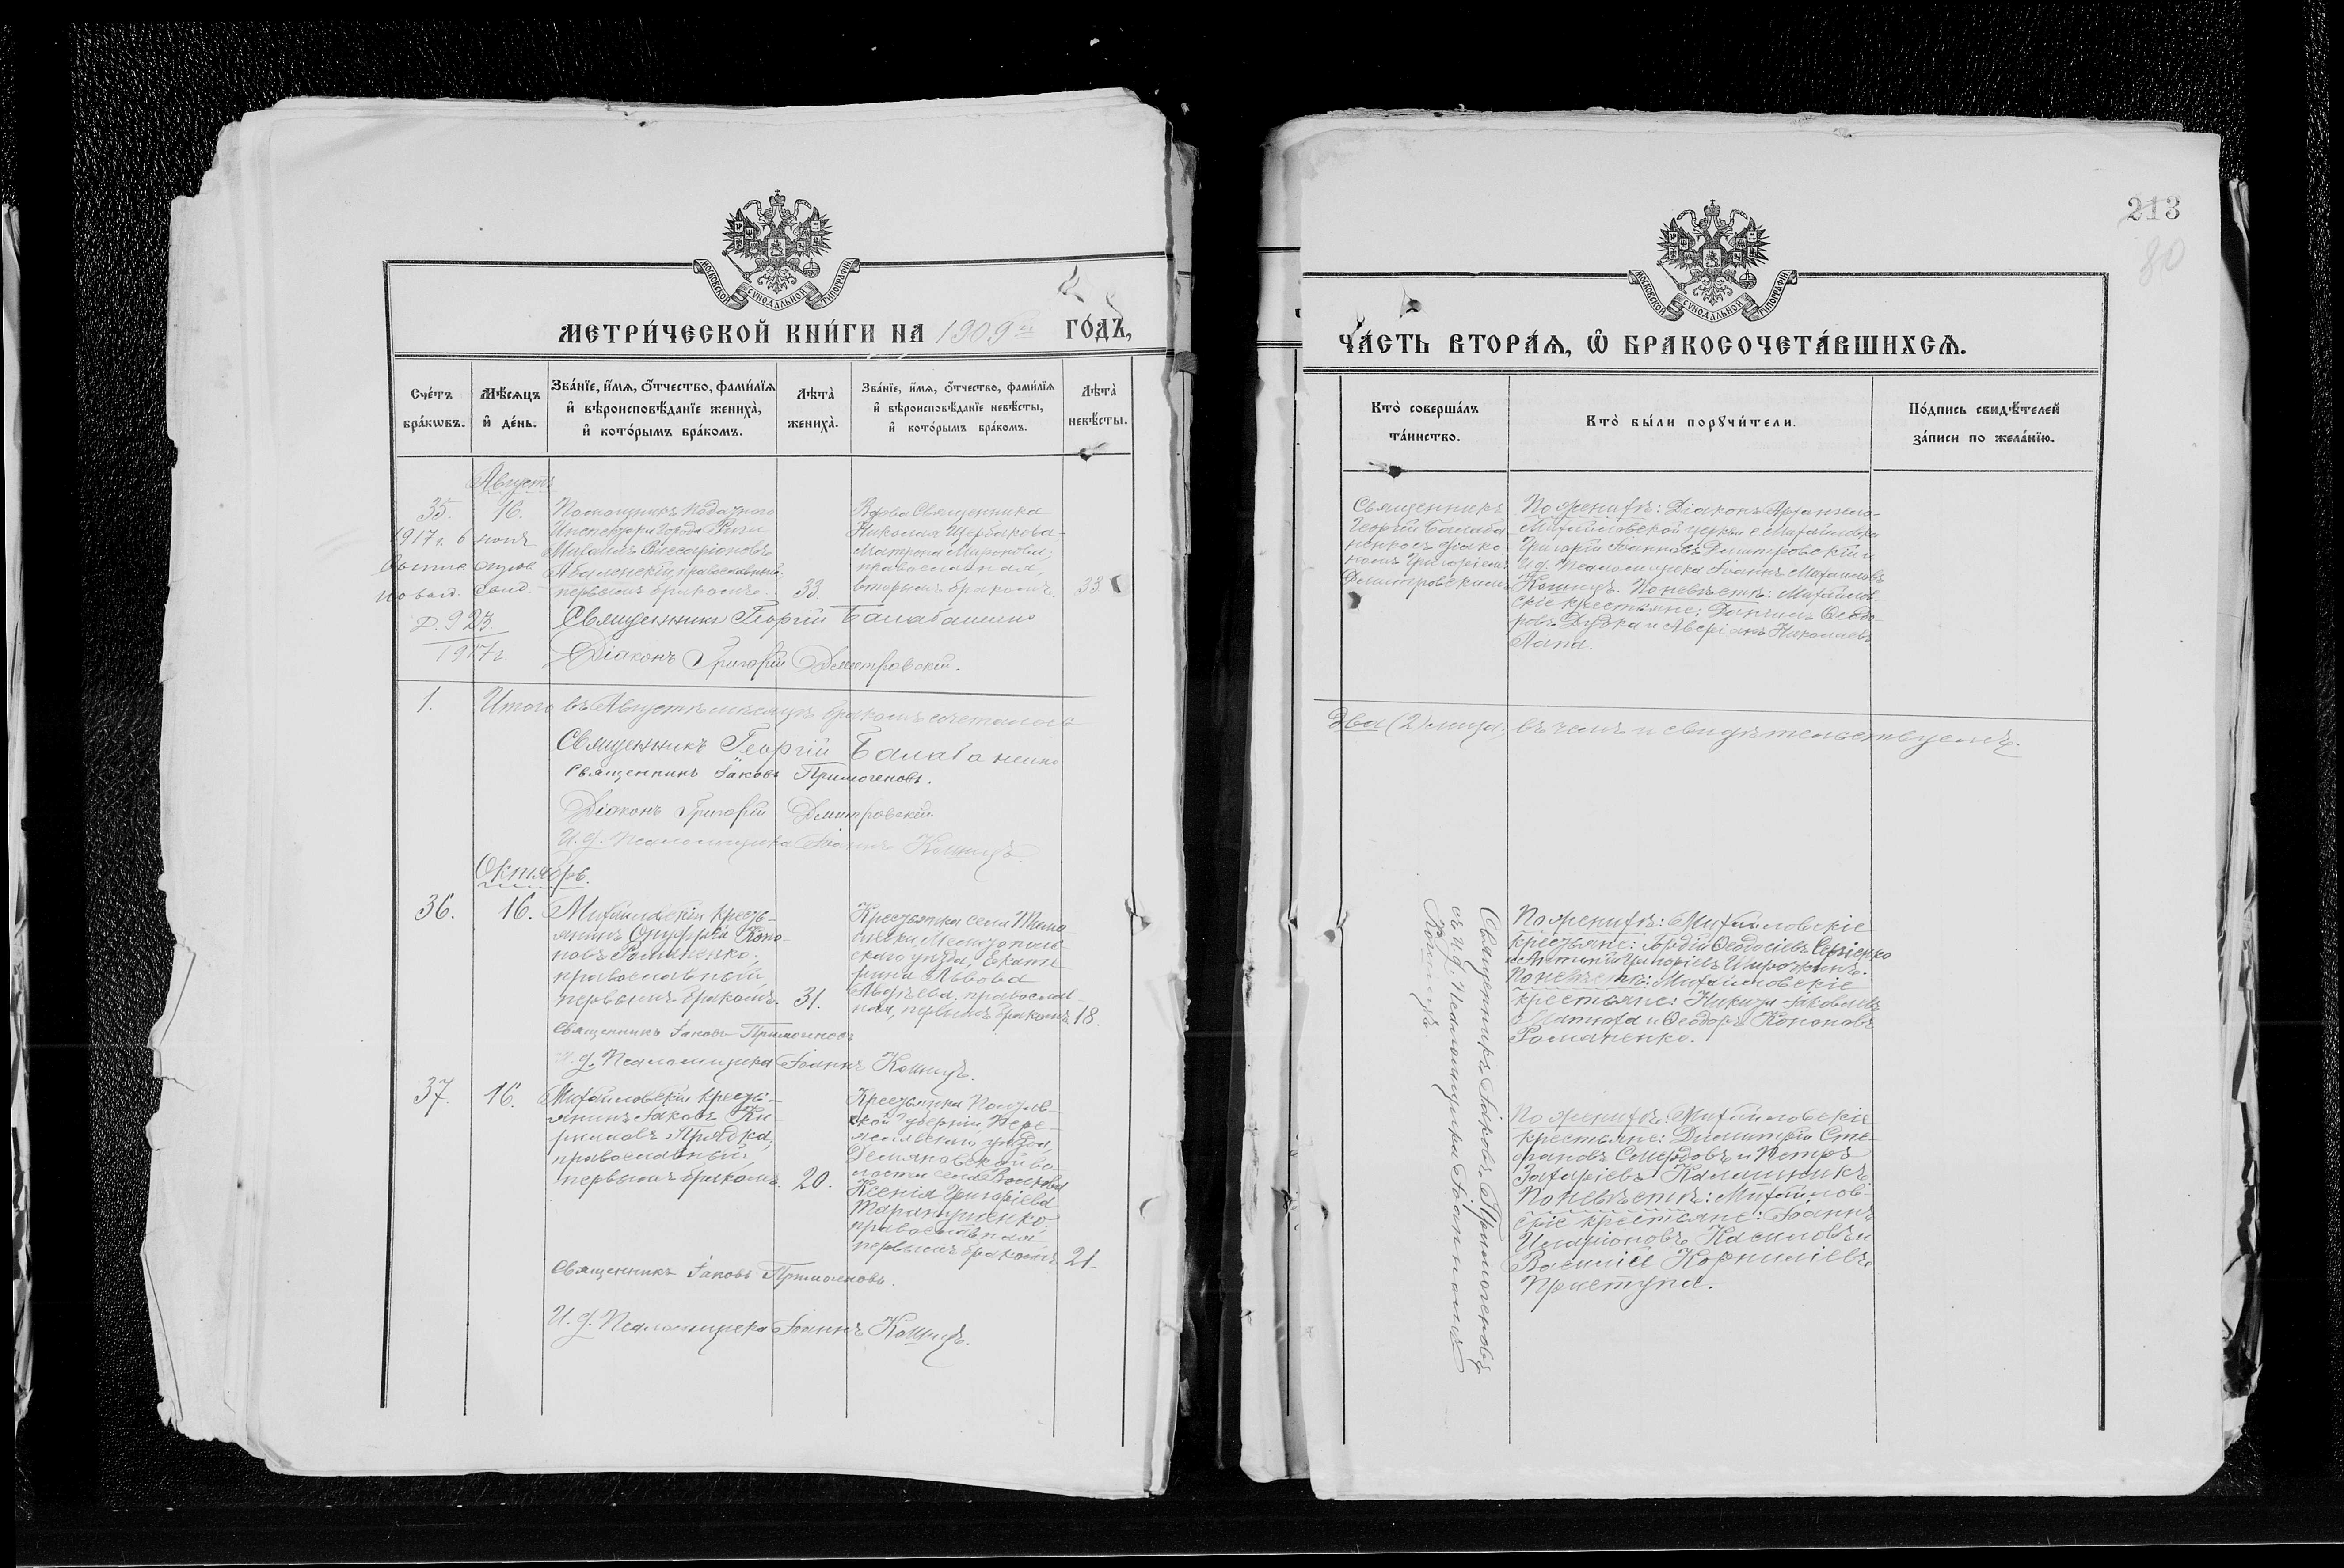 МОСКОВСКОЙ СѴНОДАЛЬНОЙ ТИПОГРАФІИ
МЕТРИ́ЧЕСКОЙ КНИ́ГИ НА 1909й ГО́ДЪ,
Сче́тъ бра́кѡвъ.
Мѣ́сяцъ и҆ де́нь.
Зва́нїе, и҆́мя, ѻ҆́тчество, фами́лїя
и҆ вѣроисповѣ́данїе жениха̀,
и҆ кото́рымъ бра́комъ.
Лѣта̀ жениха̀.
Зва́нїе, и҆́мя, ѻ҆́тчество, фами́лїя
и҆ вѣроисповѣ́данїе невѣ́сты,
и҆ кото́рымъ бра́комъ.
Лѣта̀ невѣ́сты.
Августъ
35.
16.
1917г. 6
свид.
№ 923
1917г.
Помощникъ Податного
Инспектора Города
Михаилъ Виссаріоновъ
православный
первымъ бракомъ.
33.
Вдова Священника
Николая Щербакова
Матрона Миронова,
православная,
вторымъ бракомъ.
33
Священникъ Георгій Балабаненко
Діаконъ Григорій Дмитровскій.
1.
Итого въ Августѣ мѣсяцѣ бракомъ сочеталось
Священникъ Георгій Балабаненко
Священникъ Іаковъ Примогеновъ.
Діаконъ Григорій Дмитровскій.
И. д. Псаломщика Іоаннъ Кошицъ.
Октябрь.
36.
16.
Михайловскій кресть-
янинъ Онуфрій Коно-
новъ Романенко,
православный
первымъ бракомъ.
31.
Крестьянка села
Мелитополь-
скаго уѣзда, Екате-
рина Львова
православ-
ная, первымъ бракомъ
18.
Священникъ Іаковъ Примогеновъ
И. д. Псаломщика Іоаннъ Кошицъ.
37.
16.
Михайловскій кресть-
янинъ Іаковъ Ки-
рилловъ Прядка,
православный
первымъ бракомъ.
20.
Крестьянка Полтав-
ской губерніи, Пере-
яславскаго уѣзда,
Демяновской во-
лости села
Ксенія Григоріева
Таранущенко
православная
первымъ бракомъ
21.
Священникъ Іаковъ Примогеновъ.
И. д. Псаломщика Іоаннъ Кошицъ.
213
80
МОСКОВСКОЙ СѴНОДАЛЬНОЙ ТИПОГРАФІИ
ЧА́СТЬ ВТОРА́Я, Ѡ҆ БРАКОСОЧЕТА́ВШИХСЯ.
Кто̀ соверша́лъ
та́инство.
Кто̀ бы́ли порꙋчи́тели.
По́дпись свидѣ́телей
за́писи по жела́нїю.
Священникъ
Георгій Балаба-
ненко съ діако-
номъ Григоріемъ
Дмитровскимъ
По женихѣ: Діаконъ Архангело-
Михайловской церкви с. Михайловки
Григорій Іоанновъ Дмитровскій и
И. д. Псаломщика Іоаннъ Михаиловъ
Кошицъ. По невѣстѣ: Михайлов-
скіе крестьяне: Даніилъ Ѳеодо-
ровъ Дудка и Аверіанъ Николаевъ
Лапа.
Два (2) лица; въ чемъ и свидѣтельствуемъ.
Священникъ Іаковъ Примогеновъ
съ и. д. псаломщика Іоанномъ
Кошицъ.
По женихѣ: Михайловскіе
крестьяне: Гордій Ѳеодосіевъ Сергіенко
и Антоній Григоріевъ
По невѣстѣ: Михайловскіе
крестьяне: Никита Іаковлевъ
и Ѳеодоръ Кононовъ
Романенко.
По женихѣ: Михайловскіе
крестьяне: Димитрій Сте-
фановъ и Петръ
Захаріевъ Калашникъ
По невѣстѣ: Михайлов-
скіе крестьяне: Іоаннъ
Иларіоновъ и
Василій Корниліевъ
Приступа.